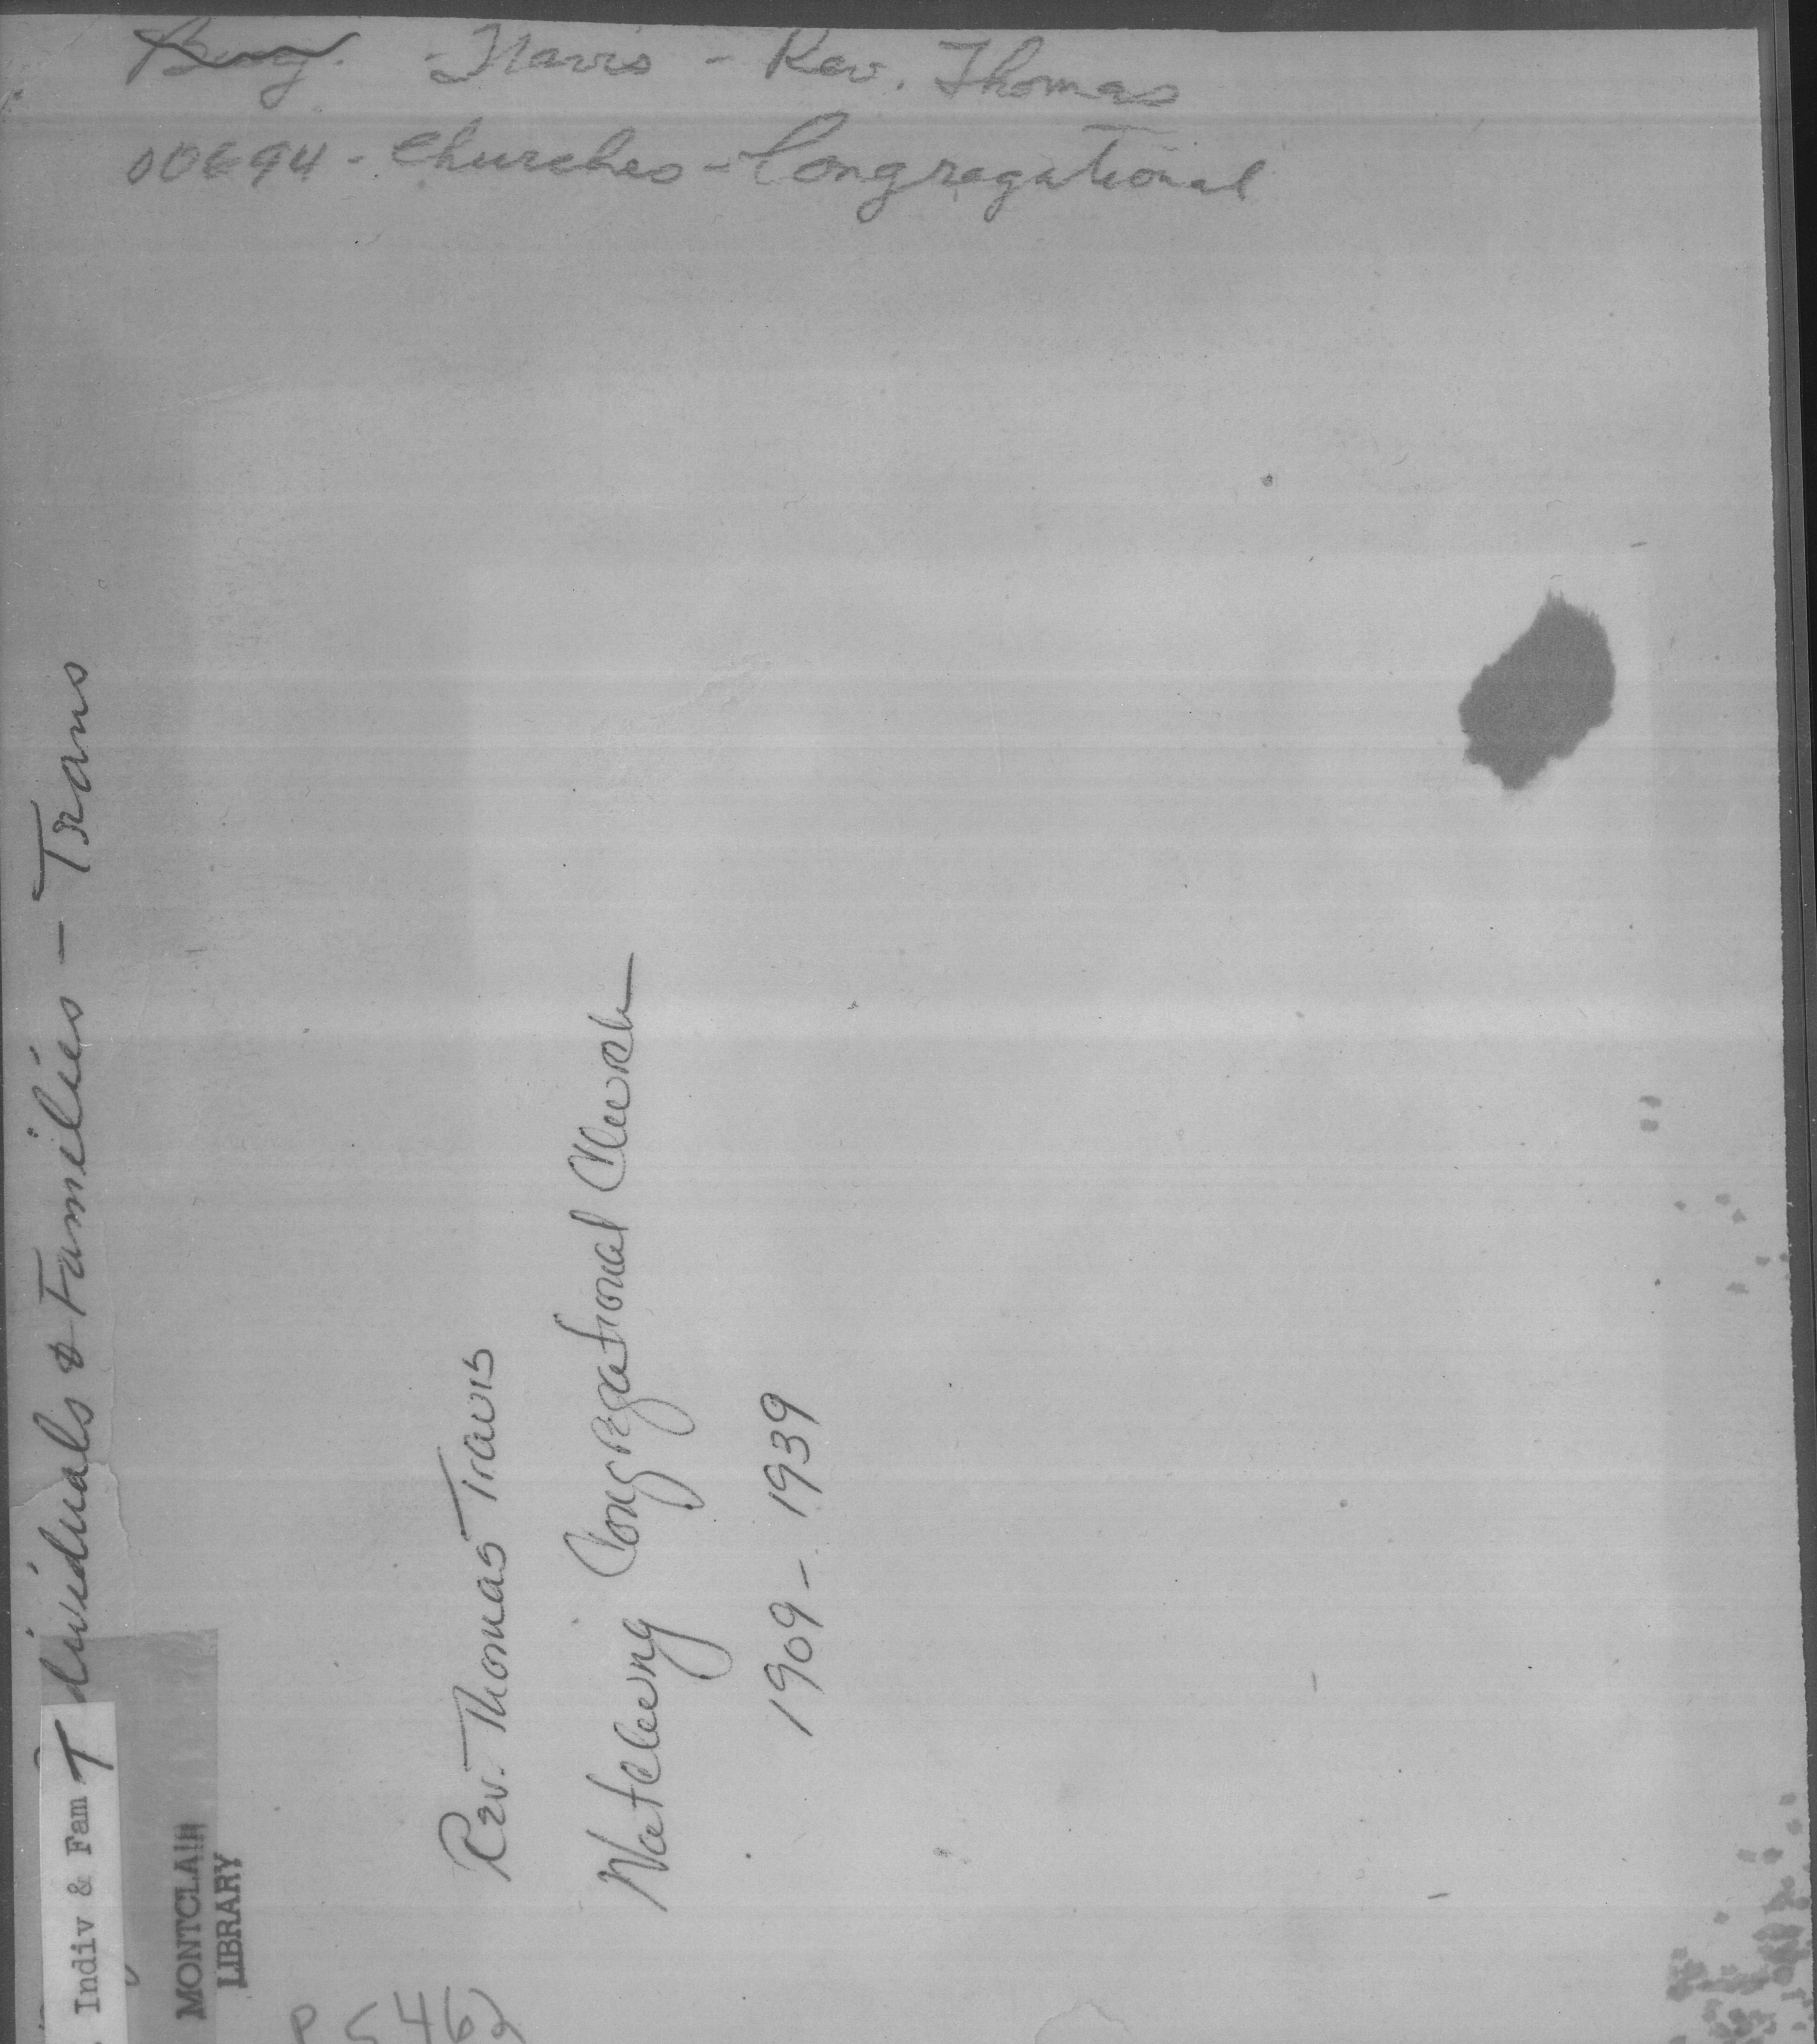 Biog. - Travis - Rev. Thomas
00694 - Churches - Congregational
dividuals & Families - Trans
Rev. Thomas Travis
Watchung Congregational Church
1909 - 1939
Indiv & Fam T
MONTCLAIR
LIBRARY